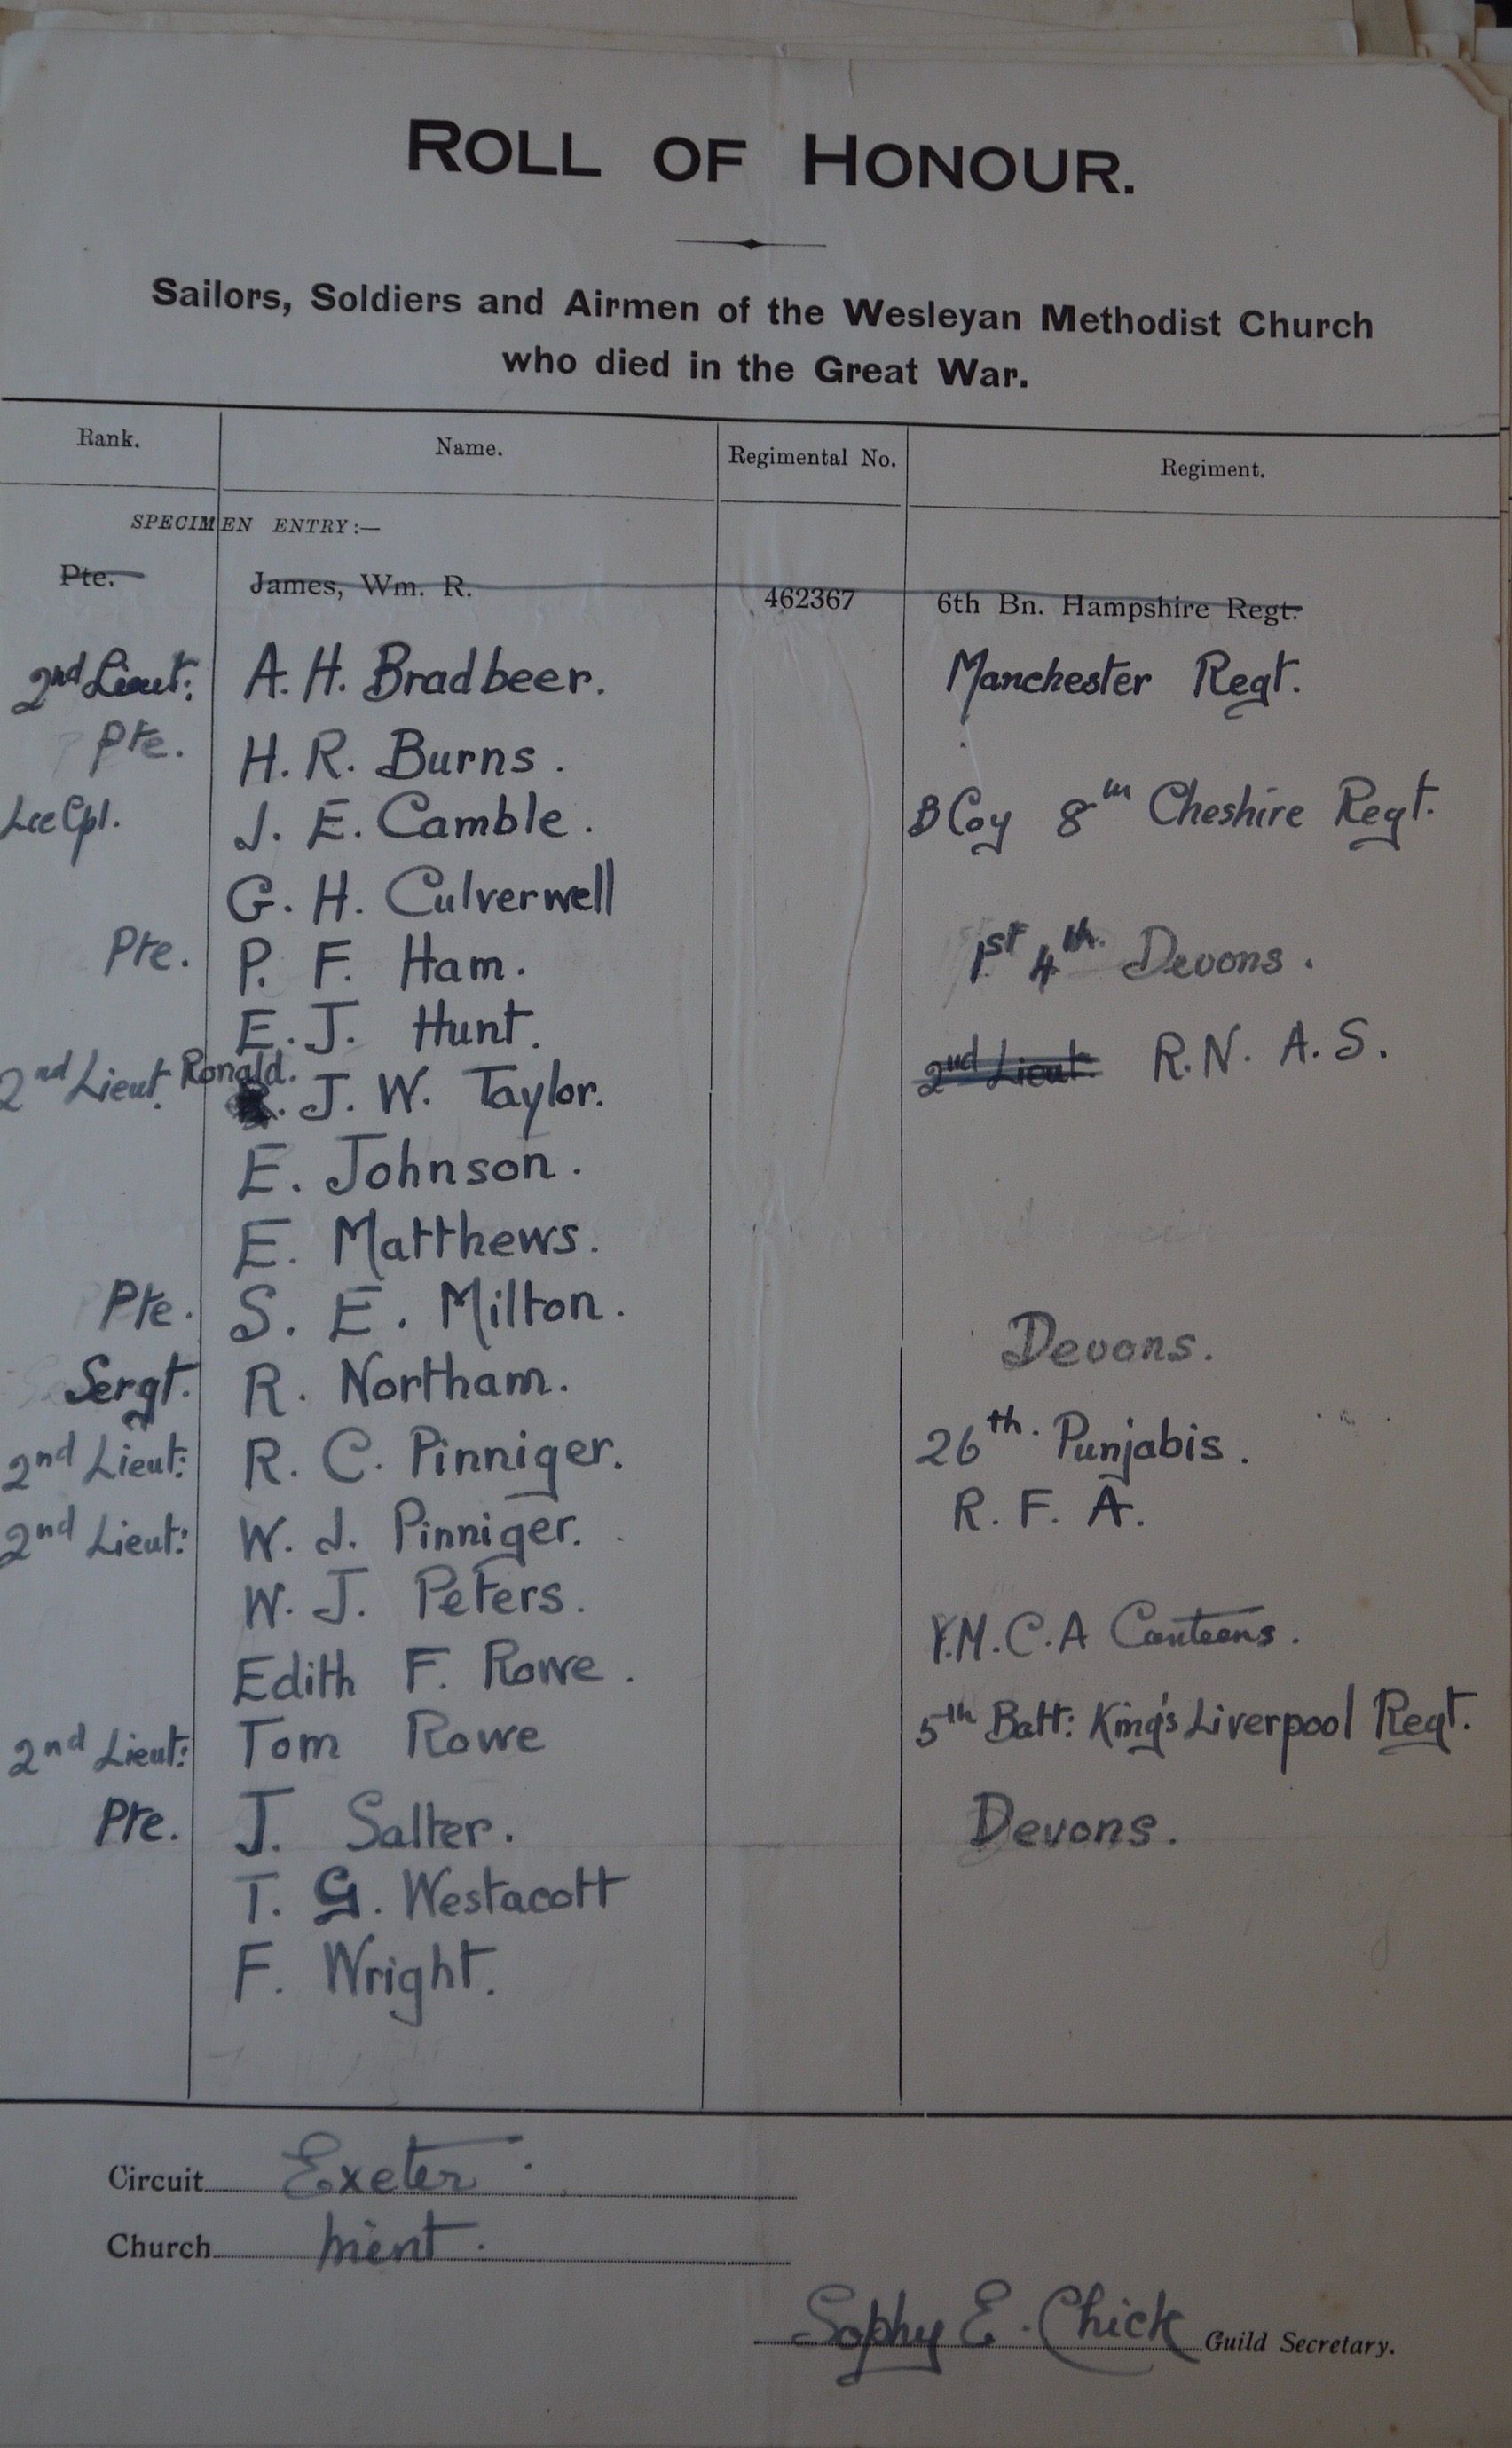 ROLL OF HONOUR.
Sailors, Soldiers and Airmen of the Wesleyan Methodist Church
who died in the Great War.
Rank. Name. Regimental No. Regiment.
SPECIMEN ENTRY:—
Pte. James, Wm. R. 462367 6th Bn. Hampshire Regt.
2nd Lieut: A. H. Bradbeer. Manchester Regt.
Pte. H. R. Burns.
Lce Cpl. J. E. Camble. B Coy 8th Cheshire Regt.
G. H. Culverwell
Pte. P. F. Ham. 1st 4th. Devons.
E. J. Hunt.
2nd Lieut. Ronald. J. W. Taylor. 2nd Lieut. R. N. A. S.
E. Johnson.
E. Matthews.
Pte. S. E. Milton. Devons.
Sergt. R. Northam.
2nd Lieut: R. C. Pinniger. 26th. Punjabis.
2nd Lieut: W. J. Pinniger. R. F. A.
W. J. Peters.
Edith F. Rowe. Y.M.C.A Canteens.
2nd Lieut: Tom Rowe 5th Batt: King's Liverpool Regt.
Pte. J. Salter. Devons.
T. G. Westacott
F. Wright.
Circuit Exeter.
Church Mint.
Sophy E. Chick Guild Secretary.